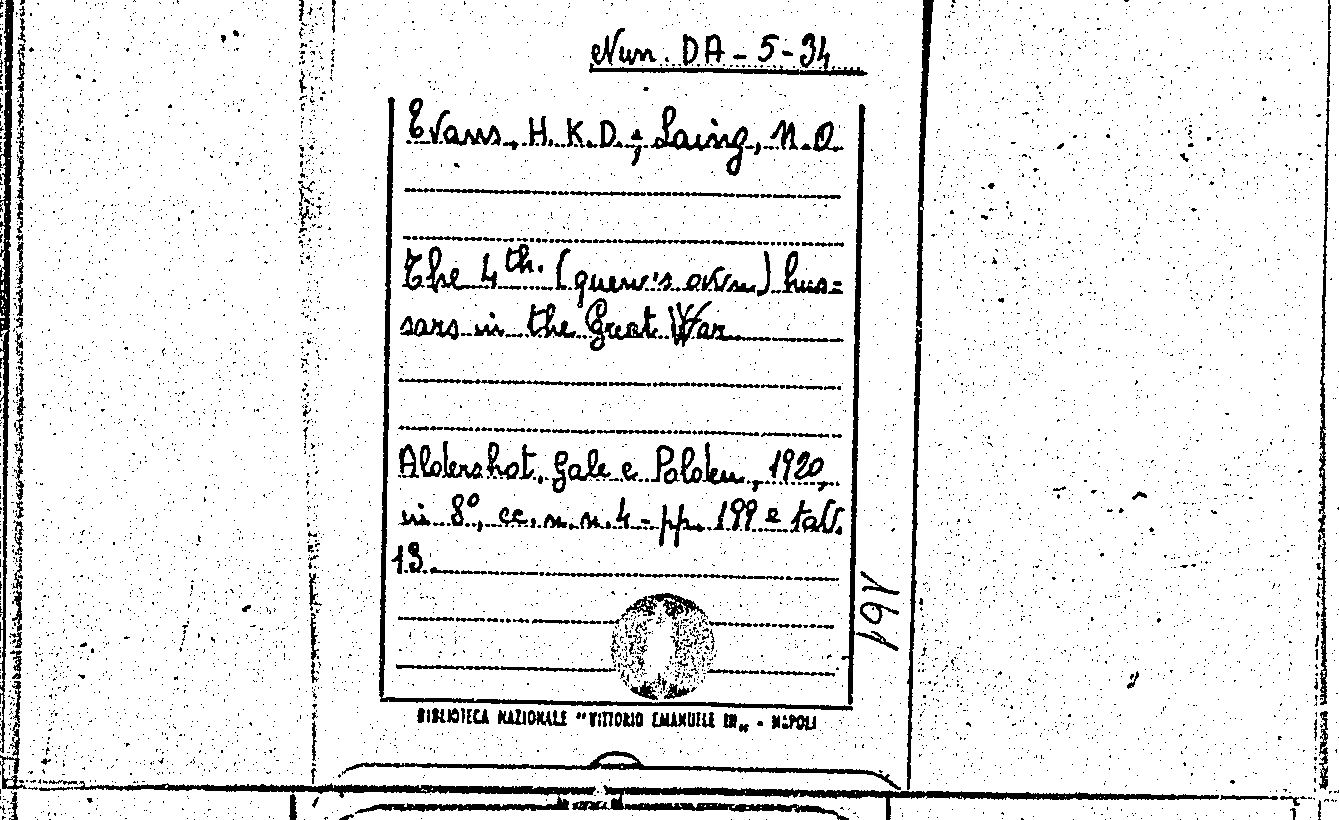 Nun. DA - 5 - 34
Evans, H. K. D.; Laing, N. O.
The 4th. (queen's own) hus=
sars in the Great War
Aldershot, Gale e Polden, 1920,
in 8°, cc. n. n. 4 - pp. 199 e tavv.
13.
BIBLIOTECA NAZIONALE "VITTORIO EMANUELE III„ - NAPOLI